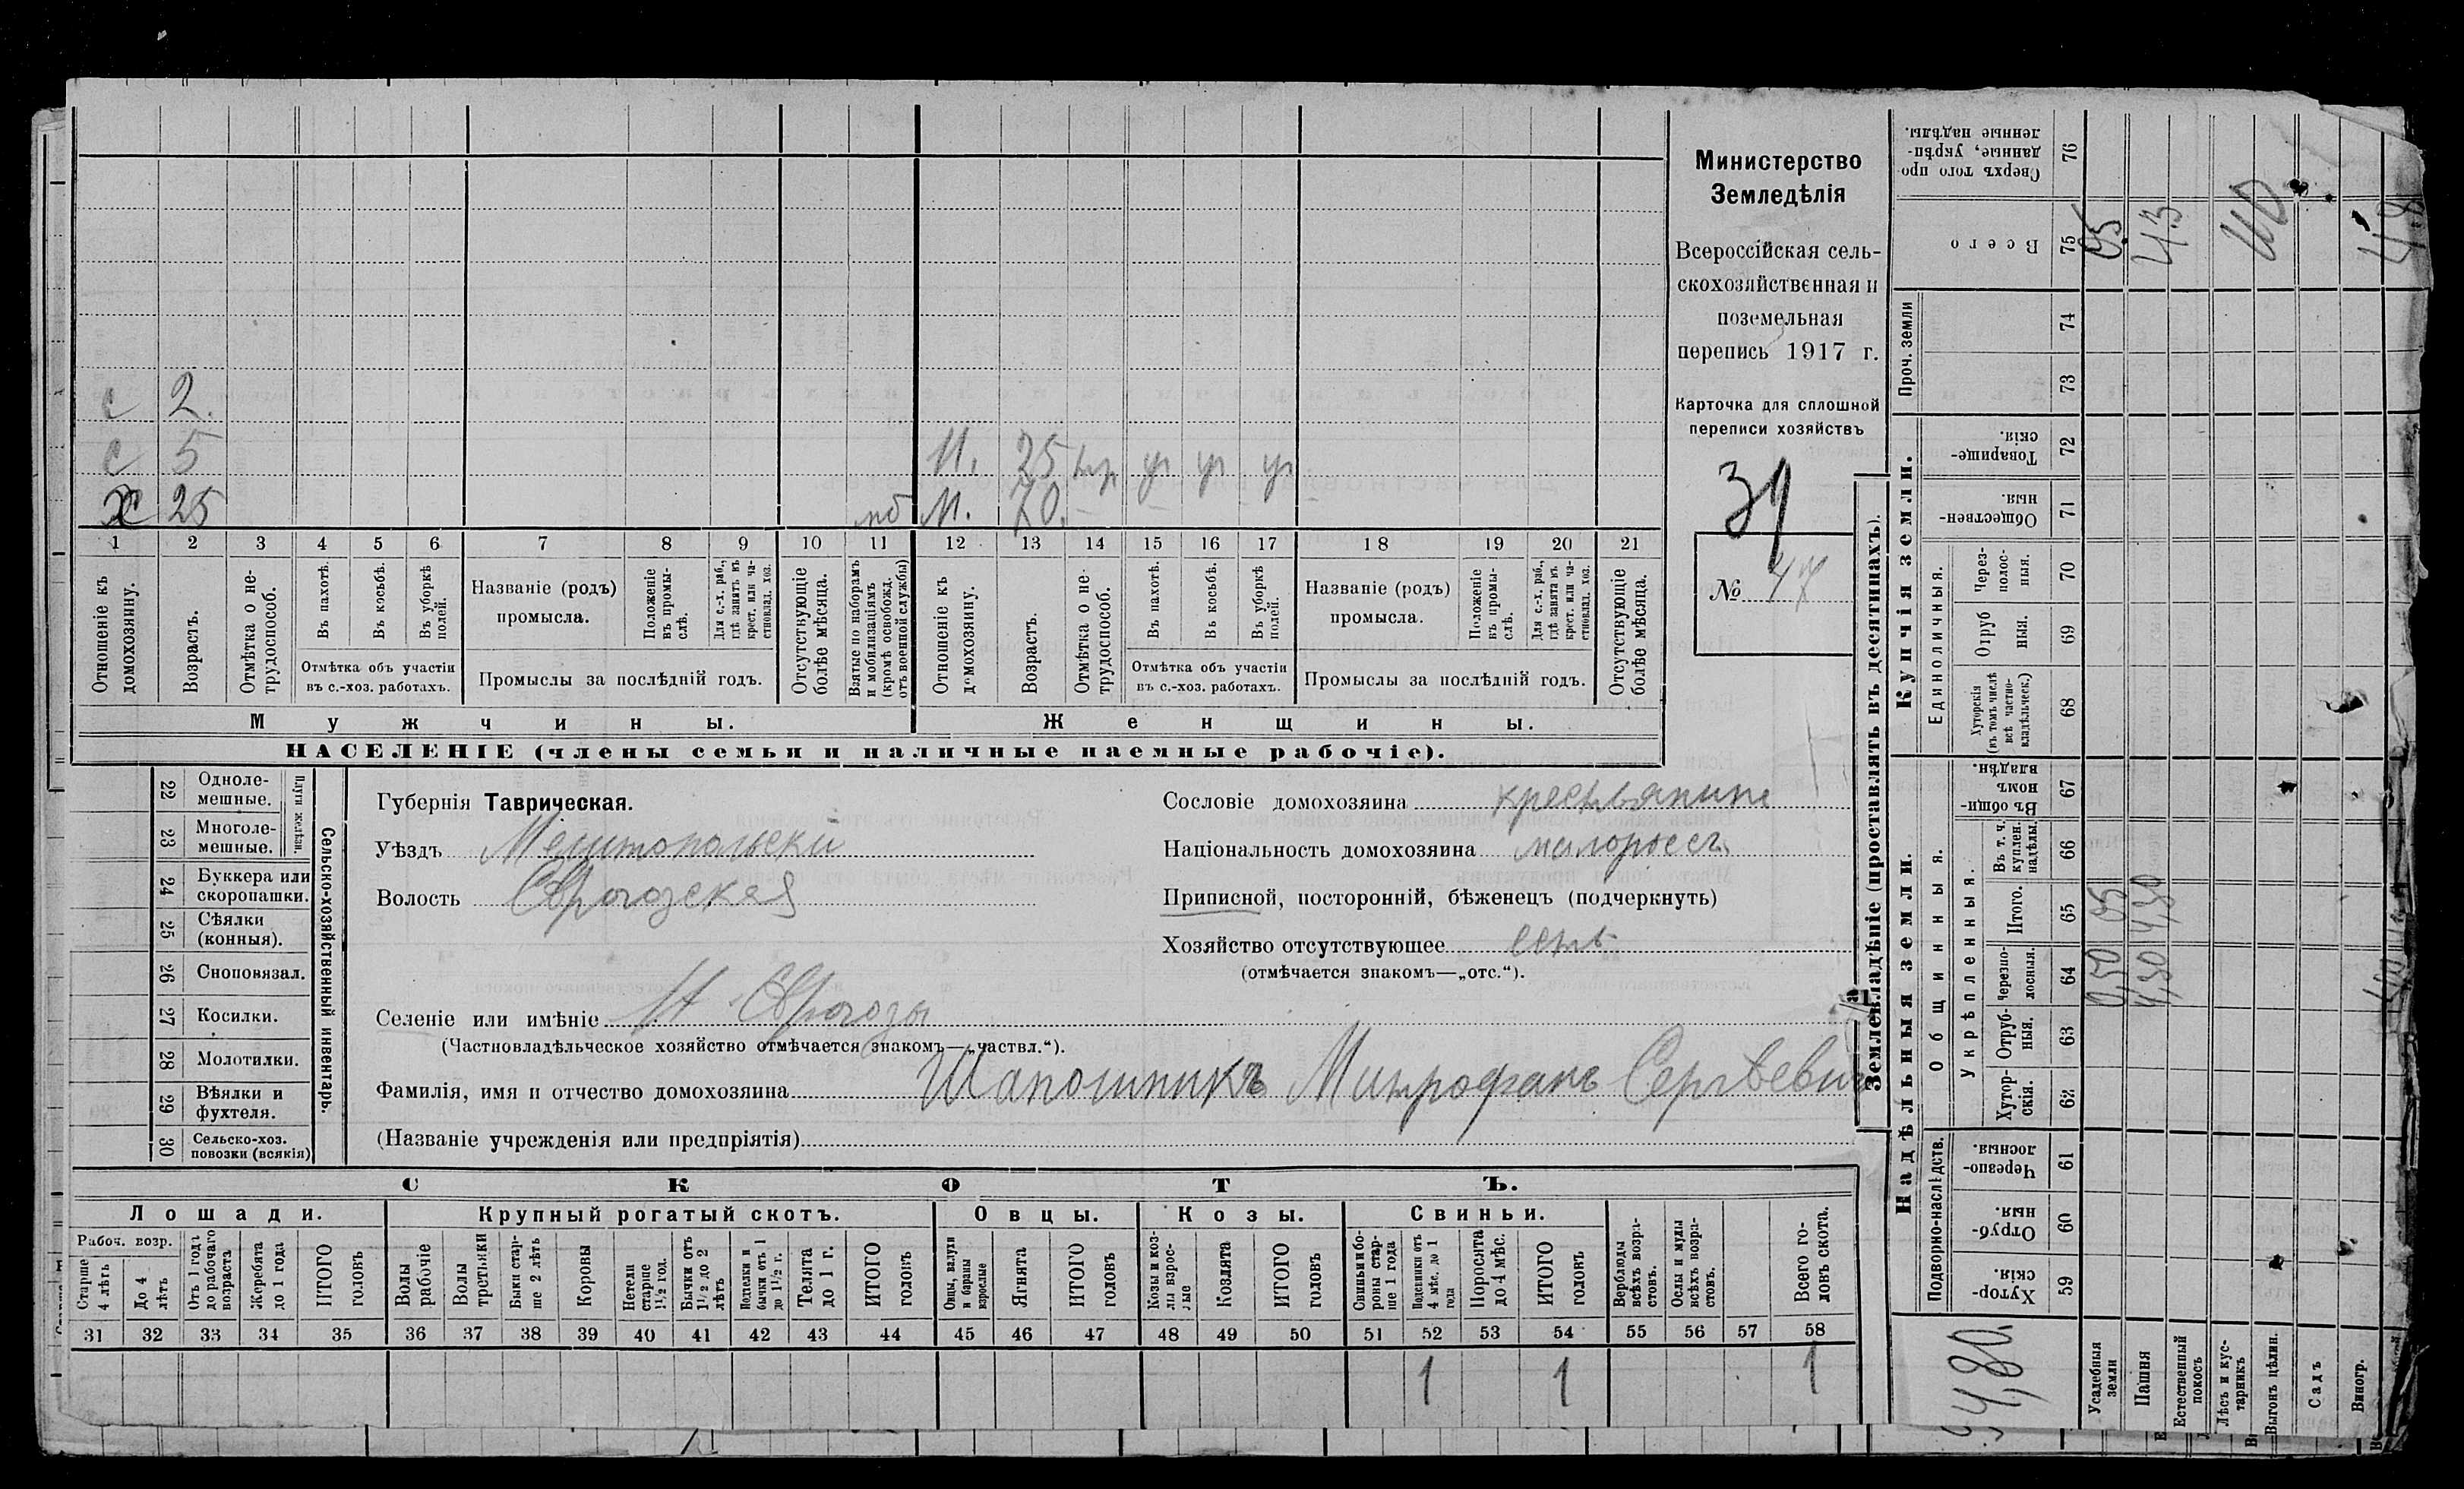 Министерство
Земледѣлія
Всероссійская сель-
скохозяйственная и
поземельная
перепись 1917 г.
Карточка для сплошной
переписи хозяйствъ
31
№ 47
с 2.
с 5 25 ур ур ур
х 25 70.
1 2 3 4 5 6 7 8 9 10 11 12 13 14 15 16 17 18 19 20 21
Отношеніе къ домохозяину.
Возрастъ.
Отмѣтка о не-трудоспособ.
Въ пахотѣ.
Въ косьбѣ.
Въ уборкѣ полей.
Отмѣтка объ участіи
въ с.-хоз. работахъ.
Названіе (родъ)
промысла.
Положеніе въ промы-слѣ.
Для с.-х. раб., гдѣ занятъ въ крест. или ча-стновлад. хоз.
Промыслы за послѣдній годъ.
Отсутствующіе болѣе мѣсяца.
Взятые по наборамъ и мобилизаціямъ (кромѣ освобожд. отъ военной службы)
Отношеніе къ домохозяину.
Возрастъ.
Отмѣтка о не-трудоспособ.
Въ пахотѣ.
Въ косьбѣ.
Въ уборкѣ полей.
Отмѣтка объ участіи
въ с.-хоз. работахъ.
Названіе (родъ)
промысла.
Положеніе въ промы-слѣ.
Для с.-х. раб., гдѣ занята въ крест. или ча-стновлад. хоз.
Промыслы за послѣдній годъ.
Отсутствующіе болѣе мѣсяца.
Мужчины.
Женщины.
НАСЕЛЕНІЕ (члены семьи и наличные наемные рабочіе).
Сельско-хозяйственный инвентарь.
Плуги желѣзн.
22 Одноле-мешные.
23 Многоле-мешные.
24 Буккера или скоропашки.
25 Сѣялки (конныя).
26 Сноповязал.
27 Косилки.
28 Молотилки.
29 Вѣялки и фухтеля.
30 Сельско-хоз. повозки (всякія)
Губернія Таврическая.
Уѣздъ Мелитопольскій
Волость
Селеніе или имѣніе
(Частновладѣльческое хозяйство отмѣчается знакомъ—„частвл.“).
Фамилія, имя и отчество домохозяина Шапошникъ Митрофанъ Сергѣевич
(Названіе учрежденія или предпріятія)
Сословіе домохозяина крестьянинъ
Національность домохозяина малороссъ
Приписной, посторонній, бѣженецъ (подчеркнуть)
Хозяйство отсутствующее есть
(отмѣчается знакомъ—„отс.“).
СКОТЪ.
Лошади.
Рабоч. возр.
Старше 4 лѣтъ
До 4 лѣтъ
Отъ 1 года до рабочаго возраста
Жеребята до 1 года
ИТОГО головъ
Крупный рогатый скотъ.
Волы рабочіе
Волы третьяки
Быки стар-ше 2 лѣтъ
Коровы
Нетели старше 1½ год.
Бычки отъ 1½ до 2 лѣтъ
Телки и бычки отъ 1 до 1½ г.
Телята до 1 г.
ИТОГО головъ
Овцы.
Овцы, валухи и бараны взрослые
Ягнята
ИТОГО головъ
Козы.
Козы и коз-лы взрос-лые
Козлята
ИТОГО головъ
Свиньи.
Свиньи и бо-ровы стар-ше 1 года
Подсвинки отъ 4 мѣс. до 1 года
Поросята до 4 мѣс.
ИТОГО головъ
Верблюды всѣхъ возра-стовъ.
Ослы и мулы всѣхъ возра-стовъ.
Всего го-ловъ скота.
31 32 33 34 35 36 37 38 39 40 41 42 43 44 45 46 47 48 49 50 51 52 53 54 55 56 57 58
1 1 1
Землевладѣніе (проставлять въ десятинахъ).
Надѣльныя земли.
Купчія земли.
Проч. земли
Подворно-наслѣдств.
Общинныя.
Укрѣпленныя.
Единоличныя.
59 Хутор-скія.
60 Отруб-ныя.
61 Черезпо-лосныя.
62 Хутор-скія.
63 Отруб-ныя.
64 Черезпо-лосныя.
65 Итого.
66 Въ т. ч. куплен. надѣлы.
67 Въ общин-номъ владѣн.
68 Хуторскія (въ томъ числѣ всѣ частно-владѣльческ.)
69 Отруб ныя.
70 Через-полос-ныя.
71 Обществен-ныя.
72 Товарище-скія.
73
74
75 Всего
76 Сверхъ того про данные, укрѣп-ленные надѣлы.
Усадебныя земли 0,50
Пашня 4,30 4,30 43
Естественный покосъ
Лѣсъ и кус-тарникъ
Выгонъ цѣлин.
Садъ
Виногр.
4,80 48